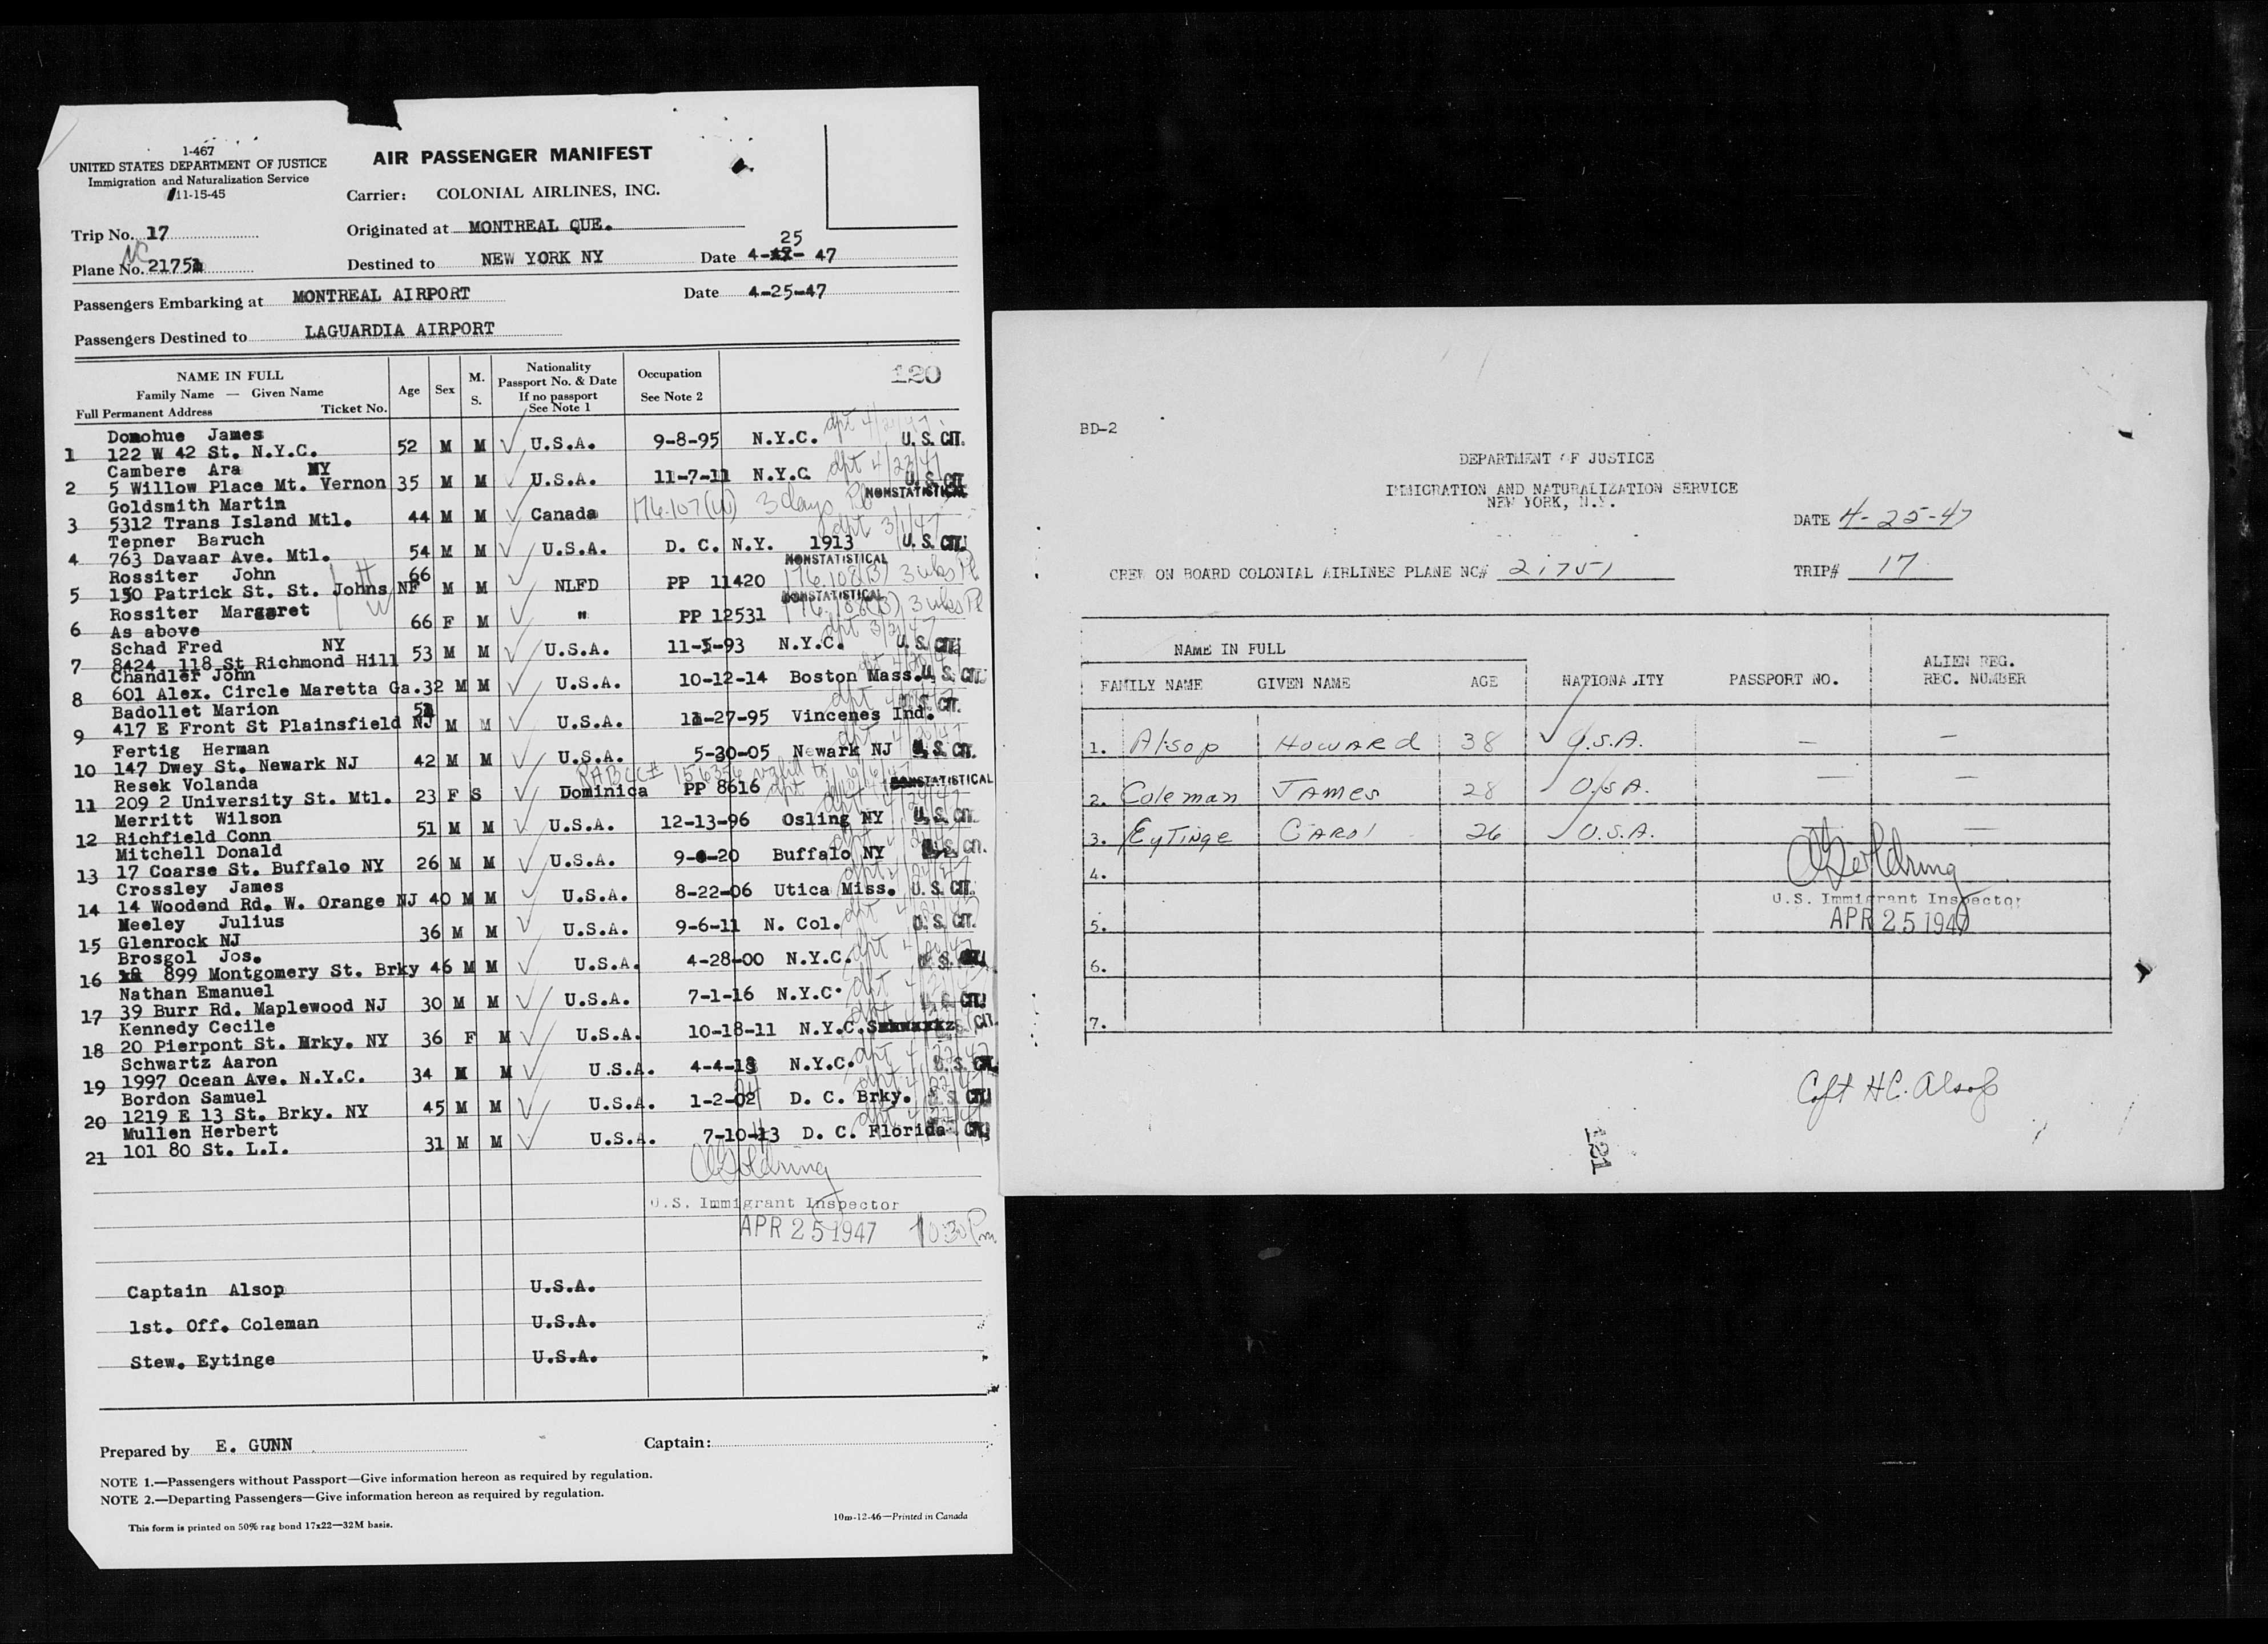 1-467
UNITED STATES DEPARTMENT OF JUSTICE
Immigration and Naturalization Service
11-15-45
AIR PASSENGER MANIFEST
Carrier: COLONIAL AIRLINES, INC.
Trip No. 17
Originated at MONTREAL QUE.
25
NC
Plane No. 21751
Destined to NEW YORK NY Date 4- - 47
Passengers Embarking at MONTREAL AIRPORT Date 4-25-47
Passengers Destined to LAGUARDIA AIRPORT
NAME IN FULL
Family Name — Given Name
Full Permanent Address Ticket No.
Age
Sex
M. S.
Nationality
Passport No. & Date
If no passport
See Note 1
Occupation
See Note 2
120
Domohue James
1 122 W 42 St. N.Y.C. 52 M M U.S.A. 9-8-95 N.Y.C. U. S. CIT.
Cambere Ara NY
2 5 Willow Place Mt. Vernon 35 M M U.S.A. 11-7-11 N.Y.C. dpt 4/23/47 U. S. CIT.
Goldsmith Martin NONSTATISTICAL
3 5312 Trans Island Mtl. 44 M M Canada 176.107(W) 3 days Pl
Tepner Baruch dpt 3/1/47
4 763 Davaar Ave. Mtl. 54 M M U.S.A. D. C. N.Y. 1913 U. S. CIT.
Rossiter John 66 NONSTATISTICAL
5 150 Patrick St. St. Johns NF M M NLFD PP 11420 176.108(B) 3 wks Pl
Rossiter Margaret NONSTATISTICAL
6 As above 66 F M " PP 12531 176.108(B) 3 wks Pl
Schad Fred NY
7 8424 118 St Richmond Hill 53 M M U.S.A. 11-5-93 N.Y.C. U. S. CIT.
Chandler John
8 601 Alex. Circle Maretta Ga. 32 M M U.S.A. 10-12-14 Boston Mass. U. S. CIT.
Badollet Marion
9 417 E Front St Plainsfield NJ M M U.S.A. 11-27-95 Vincenes Ind. U. S. CIT.
Fertig Herman
10 147 Dwey St. Newark NJ 42 M M U.S.A. 5-30-05 Newark NJ U. S. CIT.
Resek Volanda NONSTATISTICAL
11 209 2 University St. Mtl. 23 F S Dominica PP 8616
Merritt Wilson
12 Richfield Conn 51 M M U.S.A. 12-13-96 Osling NY U. S. CIT.
Mitchell Donald
13 17 Coarse St. Buffalo NY 26 M M U.S.A. 9- -20 Buffalo NY U. S. CIT.
Crossley James
14 14 Woodend Rd. W. Orange NJ 40 M M U.S.A. 8-22-06 Utica Miss. U. S. CIT.
Meeley Julius
15 Glenrock NJ 36 M M U.S.A. 9-6-11 N. Col. U. S. CIT.
Brosgol Jos.
16 899 Montgomery St. Brky 46 M M U.S.A. 4-28-00 N.Y.C. U. S. CIT.
Nathan Emanuel
17 39 Burr Rd. Maplewood NJ 30 M M U.S.A. 7-1-16 N.Y.C. U. S. CIT.
Kennedy Cecile
18 20 Pierpont St. Brky. NY 36 F M U.S.A. 10-18-11 N.Y.C. CIT.
Schwartz Aaron
19 1997 Ocean Ave. N.Y.C. 34 M M U.S.A. 4-4-13 N.Y.C. U. S. CIT.
Bordon Samuel
20 1219 E 13 St. Brky. NY 45 M M U.S.A. 1-2-02 D. C. Brky. U. S. CIT.
Mullen Herbert
21 101 80 St. L.I. 31 M M U.S.A. 7-10-13 D. C. Florida CIT.
U.S. Immigrant Inspector
APR 25 1947 10:30 Pm
Captain Alsop U.S.A.
1st. Off. Coleman U.S.A.
Stew. Eytinge U.S.A.
Prepared by E. GUNN Captain:
NOTE 1.—Passengers without Passport—Give information hereon as required by regulation.
NOTE 2.—Departing Passengers—Give information hereon as required by regulation.
This form is printed on 50% rag bond 17x22—32M basis.
10m-12-46—Printed in Canada
BD-2
DEPARTMENT OF JUSTICE
IMMIGRATION AND NATURALIZATION SERVICE
NEW YORK, N.Y.
DATE 4-25-47
CREW ON BOARD COLONIAL AIRLINES PLANE NC# 21751 TRIP# 17
NAME IN FULL
FAMILY NAME GIVEN NAME AGE NATIONALITY PASSPORT NO. ALIEN REG. REC. NUMBER
1. Alsop Howard 38 U.S.A. — —
2. Coleman James 28 U.S.A. — —
3. Eytinge Carol 26 U.S.A. —
4.
U.S. Immigrant Inspector
5. APR 25 1947
6.
7.
Cpt HC. Alsop
121